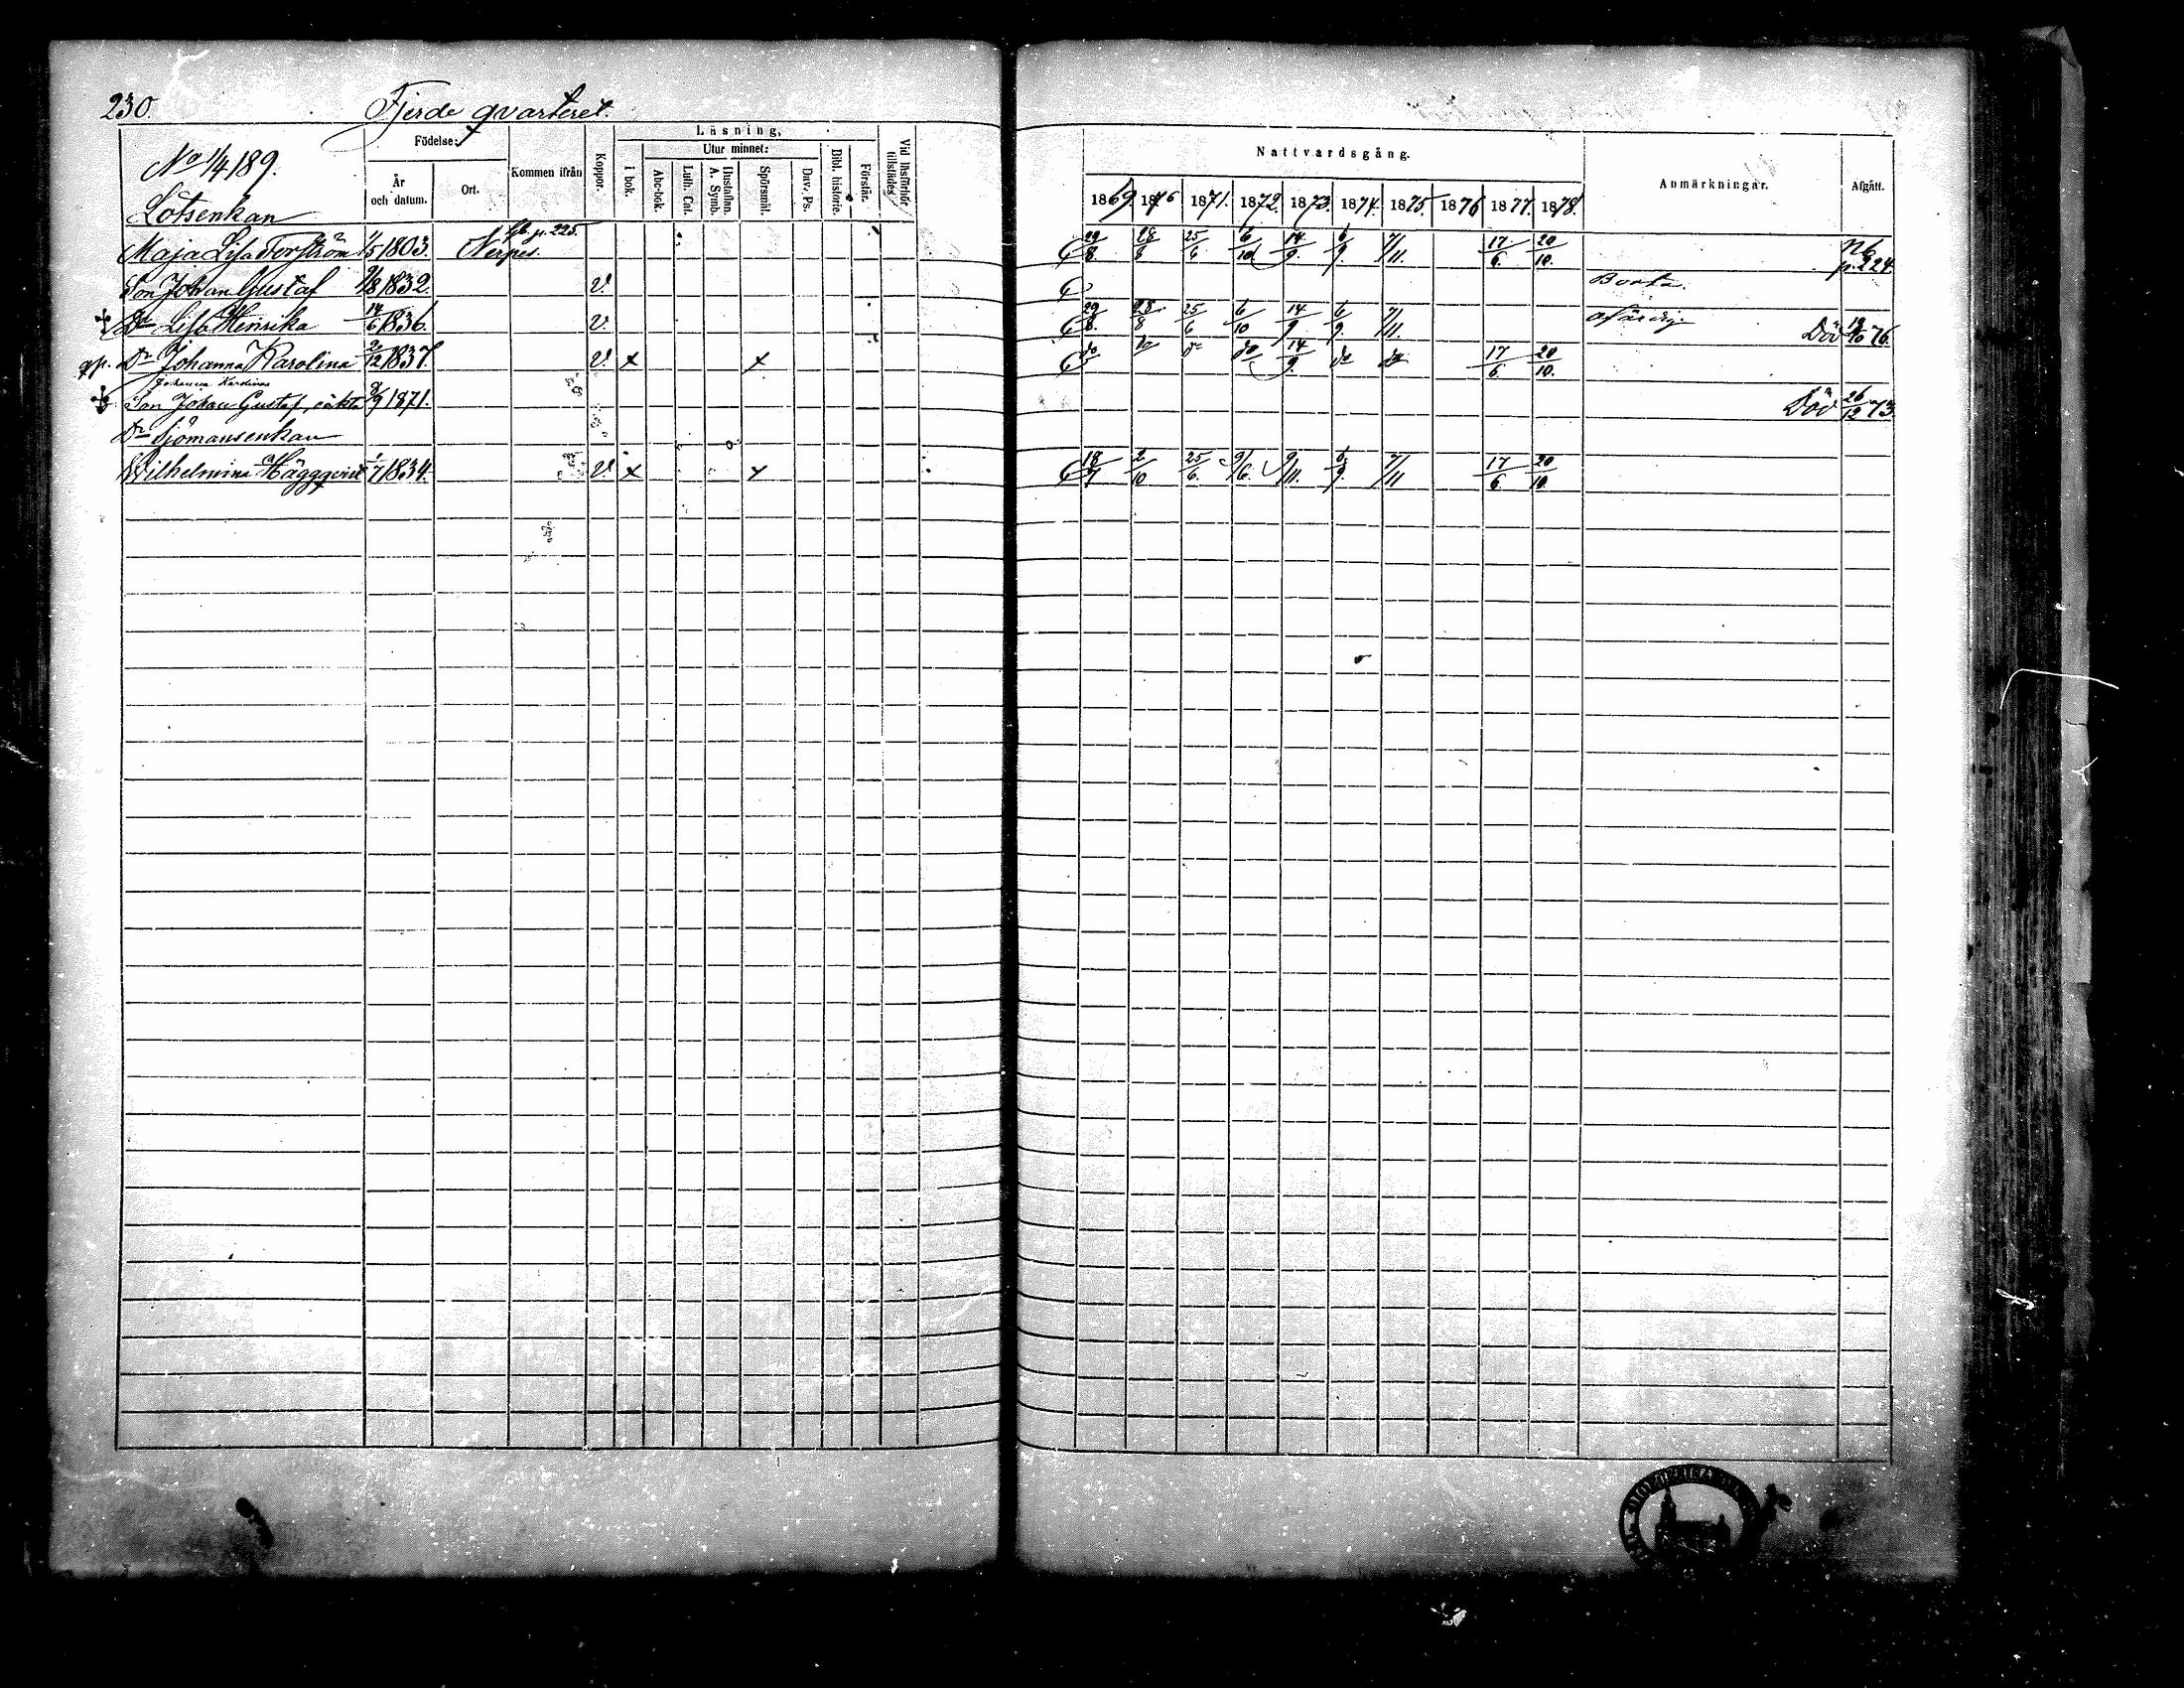 230. Fjerde qvarteret.
No 1/4 189.
Födelse:
År och datum.
Ort.
Kommen ifrån
Koppor.
Läsning,
I bok.
Utur minnet:
Abc-bok.
Luth. Cat.
Hustaflan. A. Symb.
Spörsmål.
Dav. Ps.
Bibl. historie.
Förstår.
Vid läsförhör tillstädes
Nattvardsgång.
1869 1870 1871. 1872. 1873. 1874. 1875. 1876 1877. 1878.
Anmärkningar.
Afgått.
Lotsenkan
p. 225.
Maja Lisa Forström 1/5 1803. Nerpes. 29/8 28/8 25/6 6/10 14/9 6/9 7/11. 17/6. 20/10. p. 224.
Son Johan Gustaf 9/8 1832 v. Borta.
Dr Lisa Henrika 14/6 1836. v. 29/8. 28/8 25/6 6/10 14/9 6/9. 7/11. Död 19/10 76.
Dr Johanna Karolina 2/12 1837. v. x x do do do do 14/9. do do 17/6. 20/10.
Johanna Karolinas
Son Johan Gustaf, oäkta 8/9 1871. Död 26/12 73.
Sjömansenkan
Wilhelmina Häggqvist 1/7 1834. v. x x 18/7 2/10 25/6. 9/6. 9/11. 6/9. 7/11 17/6 20/10.